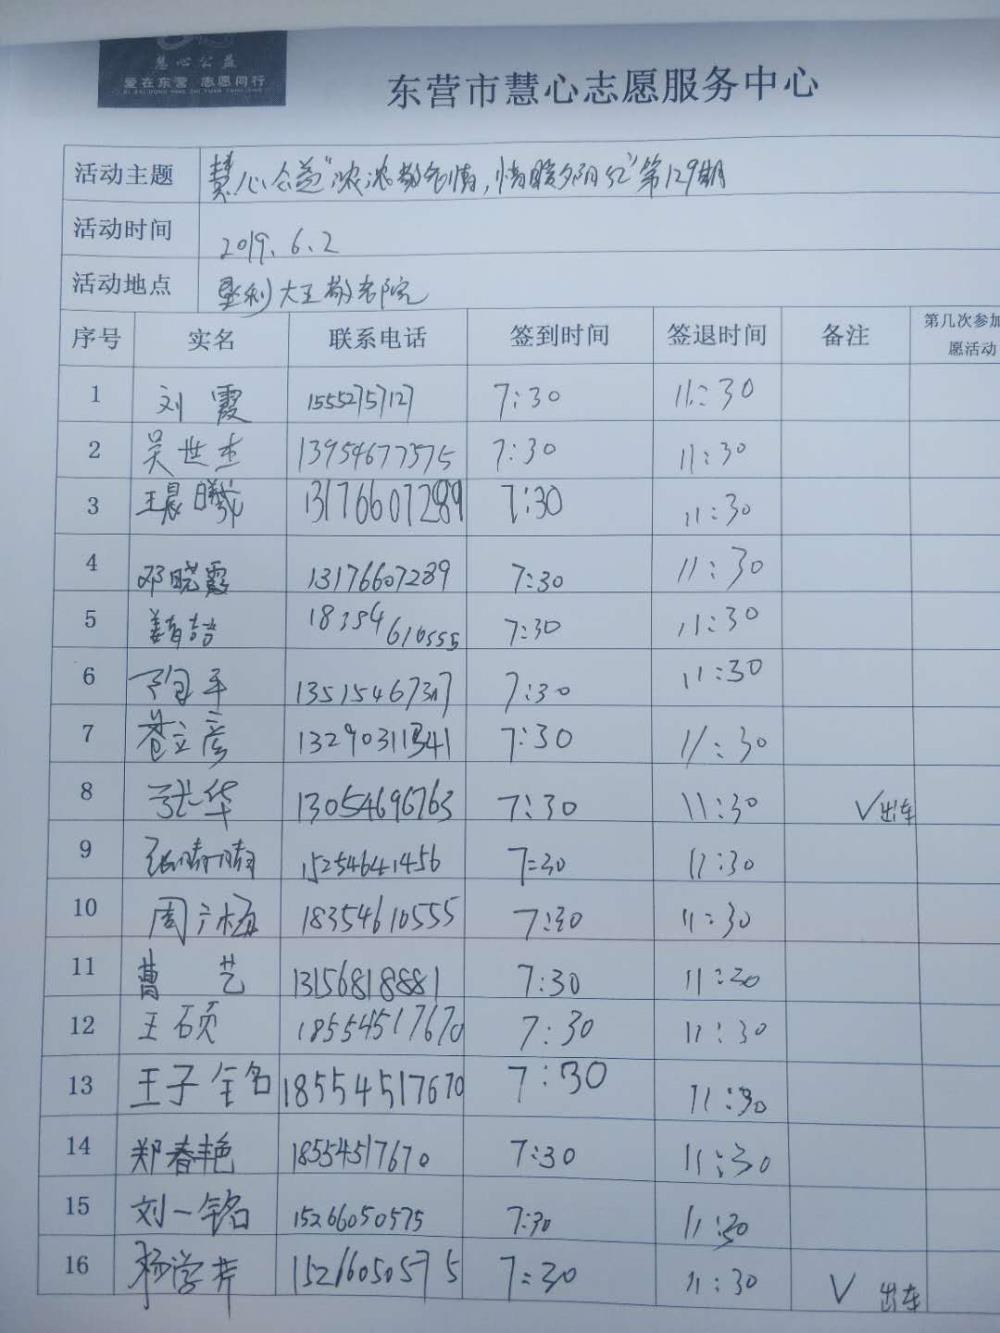 慧心公益
爱在东营 志愿同行
东营市慧心志愿服务中心
活动主题 慧心公益"浓浓敬老情,情暖夕阳红"第129期
活动时间 2019.6.2
活动地点 垦利大王敬老院
序号 实名 联系电话 签到时间 签退时间 备注 第几次参加
愿活动
1 刘霞 15552757127 7:30 11:30
2 吴世杰 13954677575 7:30 11:30
3 王晨曦 13176607289 7:30 11:30
4 邓晓霞 13176607289 7:30 11:30
5 7:30 11:30
6 7:30 11:30
7 苍立彦 7:30 11:30
8 张华 13054696763 7:30 11:30 V出车
9 张晴晴 15254641456 7:30 11:30
10 周广梅 18354610555 7:30 11:30
11 曹艺 13156818881 7:30 11:30
12 王硕 18554517670 7:30 11:30
13 王子铭 18554517670 7:30 11:30
14 郑春艳 18554517670 7:30 11:30
15 刘一铭 15266050575 7:30 11:30
16 杨学芹 15266050575 7:30 11:30 V 出车